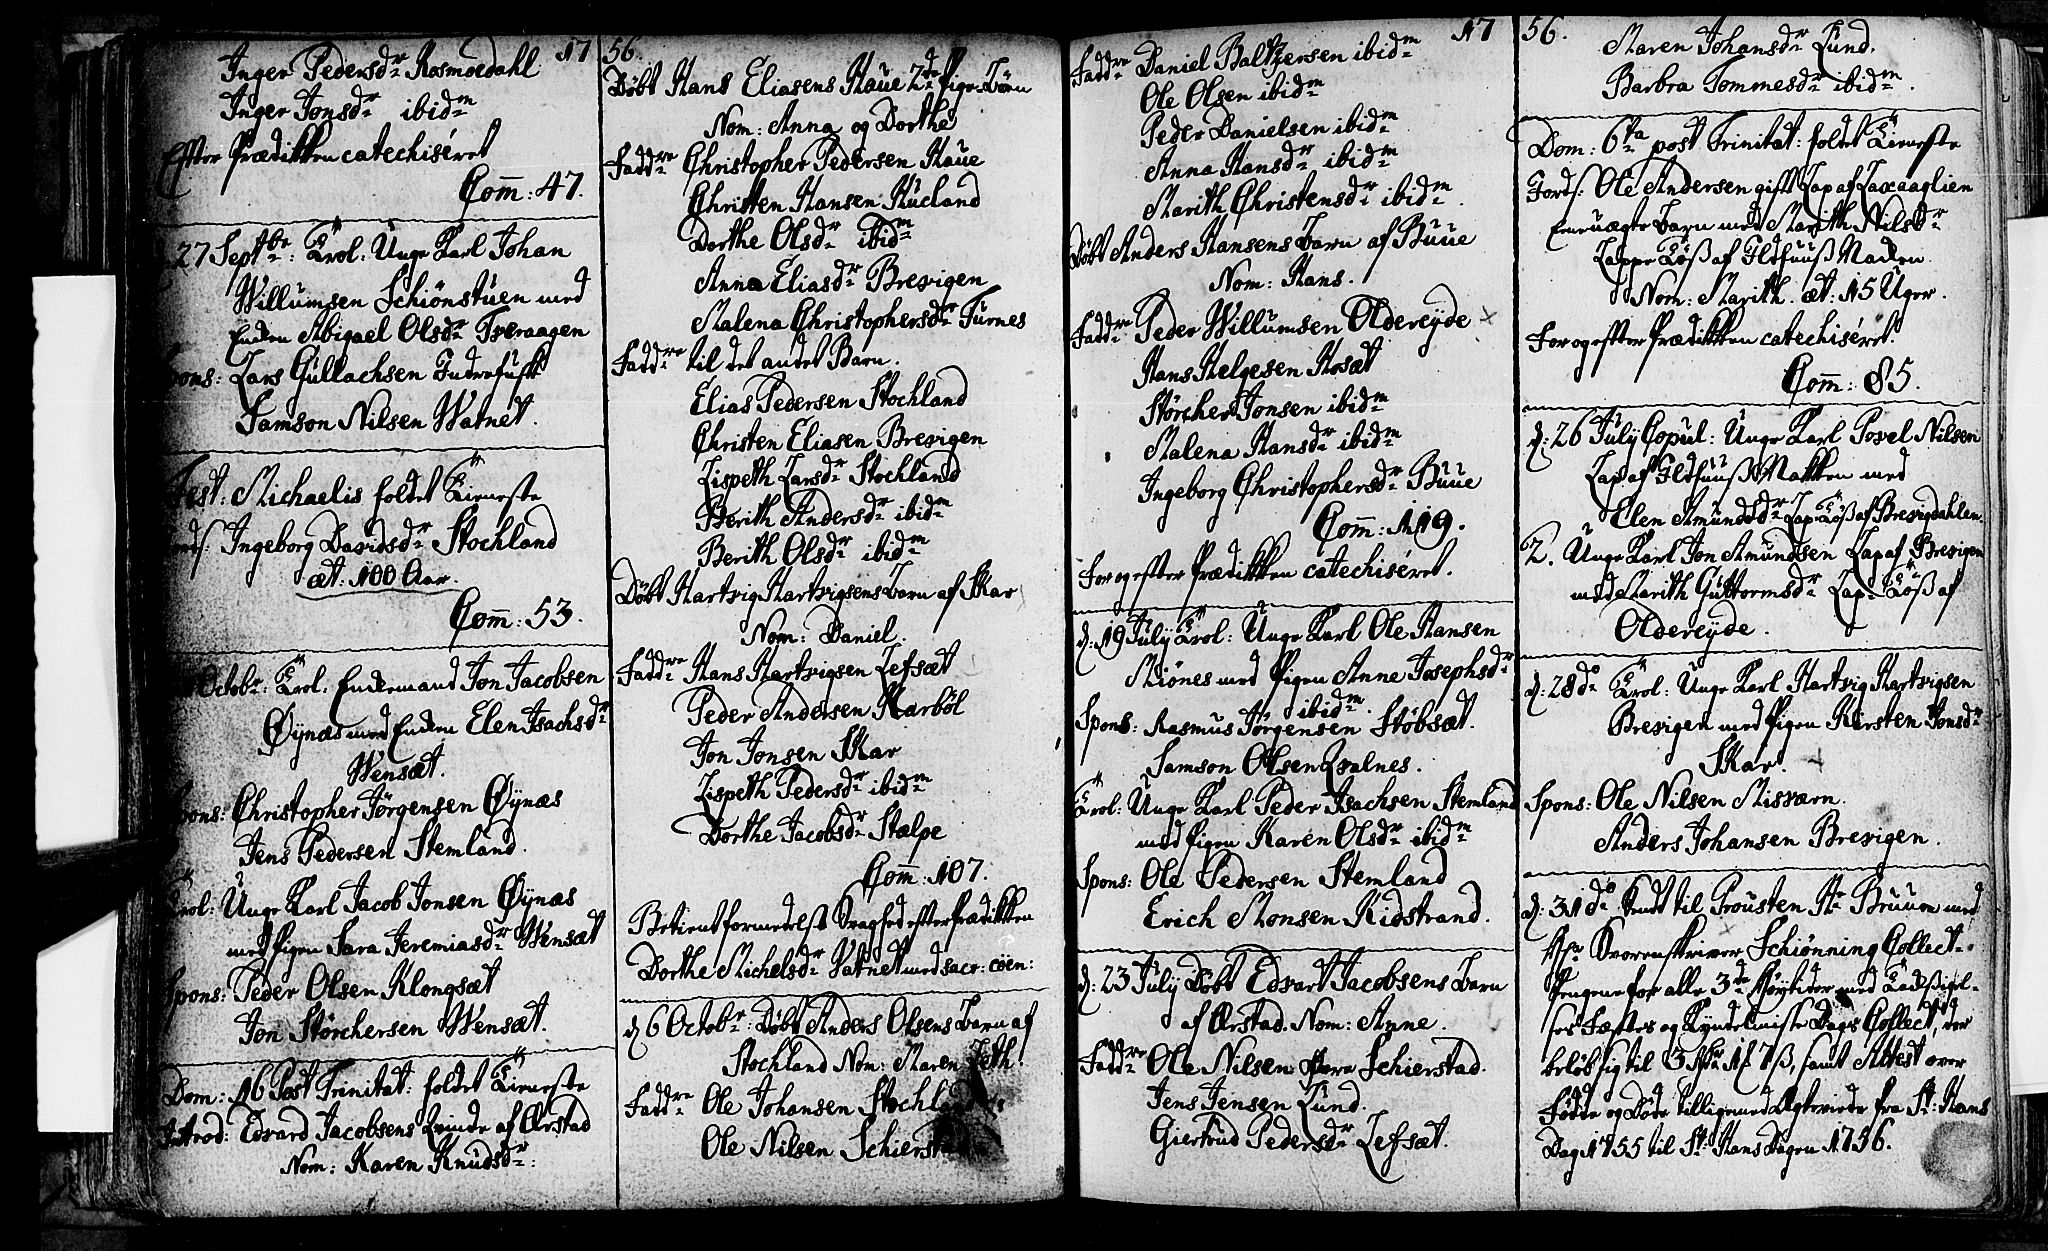 17 56.
Inger Pedersdr Rosmoedahl
Inger Jonsdr ibidm
Efter Prædikken catechiséret
Com̄: 47.
27 Septbr: Trol: Unge Karl Johan
Willumsen Schiönstuen med
Enken Abigael Olsdr Tveraagen
Spons: Lars Gullachsen
Samson Nilsen Watnet.
Fest: Michaelis holdet Tieneste
Jords: Ingeborg Davidsdr Stochland
æt: 100 Aar.
Com̄: 53.
Octobr: Trol: Enkemand Jon Jacobsen
Øynæs med Enken Elen Isachsdr
Wensæt.
Spons: Christopher Jørgensen Øynæs
Jens Pedersen Stemland.
Trol: Unge Karl Jacob Jonsen Øynæs
med Pigen Sara Jeremiasdr Wensæt
Spons: Peder Olsen Klongsæt
Jon Störchersen Wensæt.
Dom: 16 Post Trinitat: holdet Tieneste
Introd: Edvard Jacobsens Qvinde af Ørstad
Nom: Karen Knudsdr:
Döbt Hans Eliasens Haue 2de Pige-Börn
Nom: Anna og Dorthe
Faddre Christopher Pedersen Haue
Christen Hansen Hucland
Dorthe Olsdr ibidm
Anna Eliasdr Brevigen
Malena Christophersdr Turnes
Faddre til det andet Barn.
Elias Pedersen Stochland
Christen Eliasen Brevigen
Lispeth Larsdr Stochland
Berith Andersdr ibidm
Berith Olsdr ibidm
Döbt Hartvig Hartvigsens Barn af Skar
Nom: Daniel.
Faddre Hans Hartvigsen Lefsæt
Peder Andersen Karböl
Jon Jonsen Skar
Lispeth Pedersdr ibidm
Dorthe Jacobsdr Stælpe
Com̄: 107.
Betient formedelst Svaghed efter Prædikken
Dorthe Michelsdr Vatnet med sacr: cöen:
d 6 Octobr: Döbt Anders Olsens Barn af
Stochland Nom: Maren
Faddre Ole Johansen Stochland
Ole Nilsen
17 56.
Faddre Daniel Baltzersen ibidm
Ole Olsen ibidm
Peder Danielsen ibidm
Anna Hansdr ibidm
Marith Christensdr ibidm.
Döbt Anders Hansens Barn af Buue
Nom: Hans.
Faddre Peder Willumsen Oldereyde
Hans Helgesen Hosæt
Störcher Jonsen ibidm
Malena Hansdr ibidm
Ingeborg Christophersdr Buue
Com̄: 119.
For og efter Prædikken catechiséret.
d: 19 July Trol: Unge Karl Ole Hansen
Miönes med Pigen Anne Josephsdr
ibidm.
Spons: Rasmus Jörgensen Stöbsæt.
Samson Olsen Qvalnes.
Trol: Unge Karl Peder Isachsen Stemland
med Pigen Karen Olsdr ibidm
Spons: Ole Pedersen Stemland
Erich Monsen Kidstrand.
d: 23 July Döbt Edvart Jacobsens Barn
af Ørstad. Nom: Anne.
Faddre Ole Nilsen Schierstad.
Jens Jensen Lund.
Giertrud Pedersdr Lefsæt.
Maren Johansdr Lund.
Barbra Tommesdr ibidm.
Dom: 6ta post Trinitat: holdet Tieneste
Jords: Ole Andersen gift Lap af Laxaaglien
Eenuægte Barn med Marith Nilsdr
Lappe Töß af Ildhuuß Marken.
Nom: Marith. æt: 15 Uger.
For og efter Prædikken catechiséret.
Com̄: 85.
d: 26 July Copul: Unge Karl Povel Nilsen
Lap af Ildhuuß Marken med
Elen Amundsdr Lap-Töß af Brevigdahlen.
2. Unge Karl Jon Amundsen Lap af Brevigen
med Marith Guttormsdr Lap-Töß af
Oldereyde.
d: 28de Trol: Unge Karl Hartvig Hartvigsen
Brevigen med Pigen Kirsten Jonsdr
Skar.
Spons: Ole Nilsen Misværn.
Anders Johansen Brevigen.
d: 31de Sendt til Prousten Hr Bruun med
Hr Sorenskriver Schiønning Collect-
Pengene for alle 3de Höytider med
Fæstes og Kyndelmisse Dags Collect, der
belöb sig til 3 Rdr samt Attest over
Födde og Döde tillige med Ægteviede fra St: Hans
Dag 1755 til St: Hans Dagen 1756.